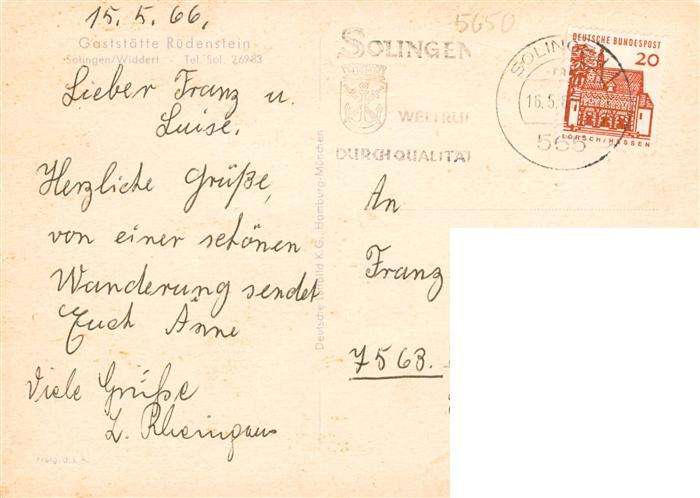 15.5.66.
5650
Gaststätte Rüdenstein
Solingen/Widdert - Tel. Sol. 26983
Lieber Franz u.
Luise.
Herzliche Grüße,
von einer schönen
Wanderung sendet
Euch Änne
Viele Grüße
Deutsche
K.G., Hamburg-München
SOLINGEN
WELTRUF
DURCH QUALITÄT
SOLINGEN
16.5.
565
DEUTSCHE BUNDESPOST
20
LORSCH/HESSEN
An
Franz
7563.